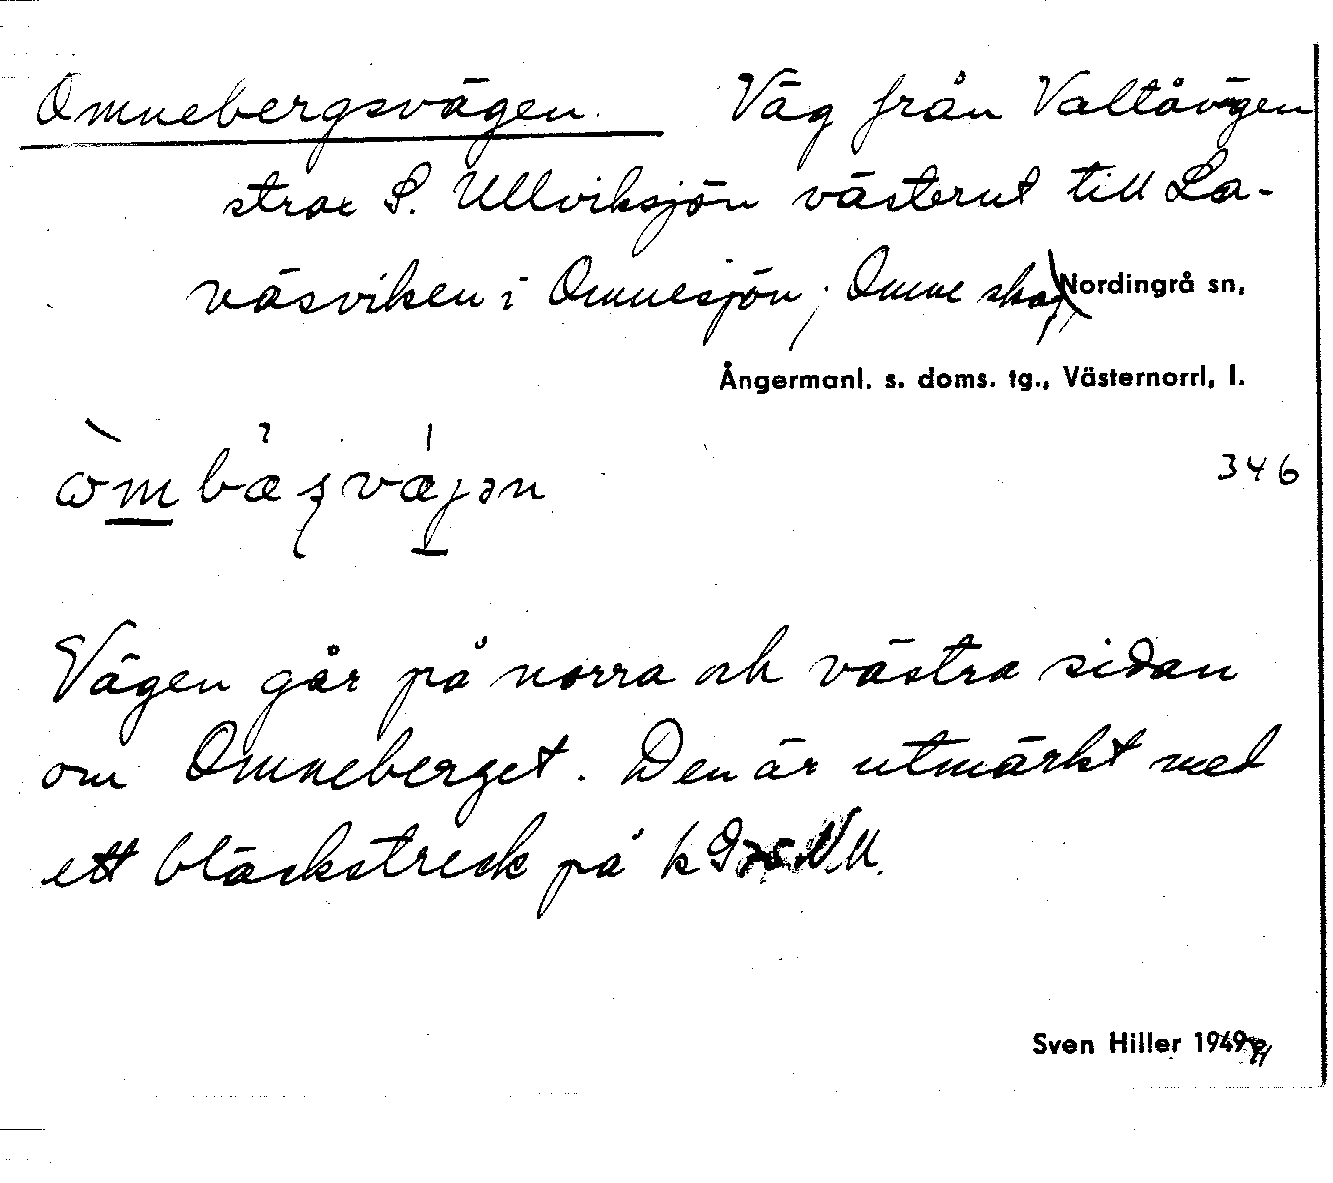 Omnebergsvägen. Väg från Valtåvägen
strax S. Ullviksjön västerut till La-
väsviken i Omnesjön, Omne skog, Nordingrå sn,
Ångermanl. s. doms. tg., Västernorrl, l.
346
Vägen går på norra och västra sidan
om Omneberget. Den är utmärkt med
ett bläckstreck på k
Sven Hiller 1949